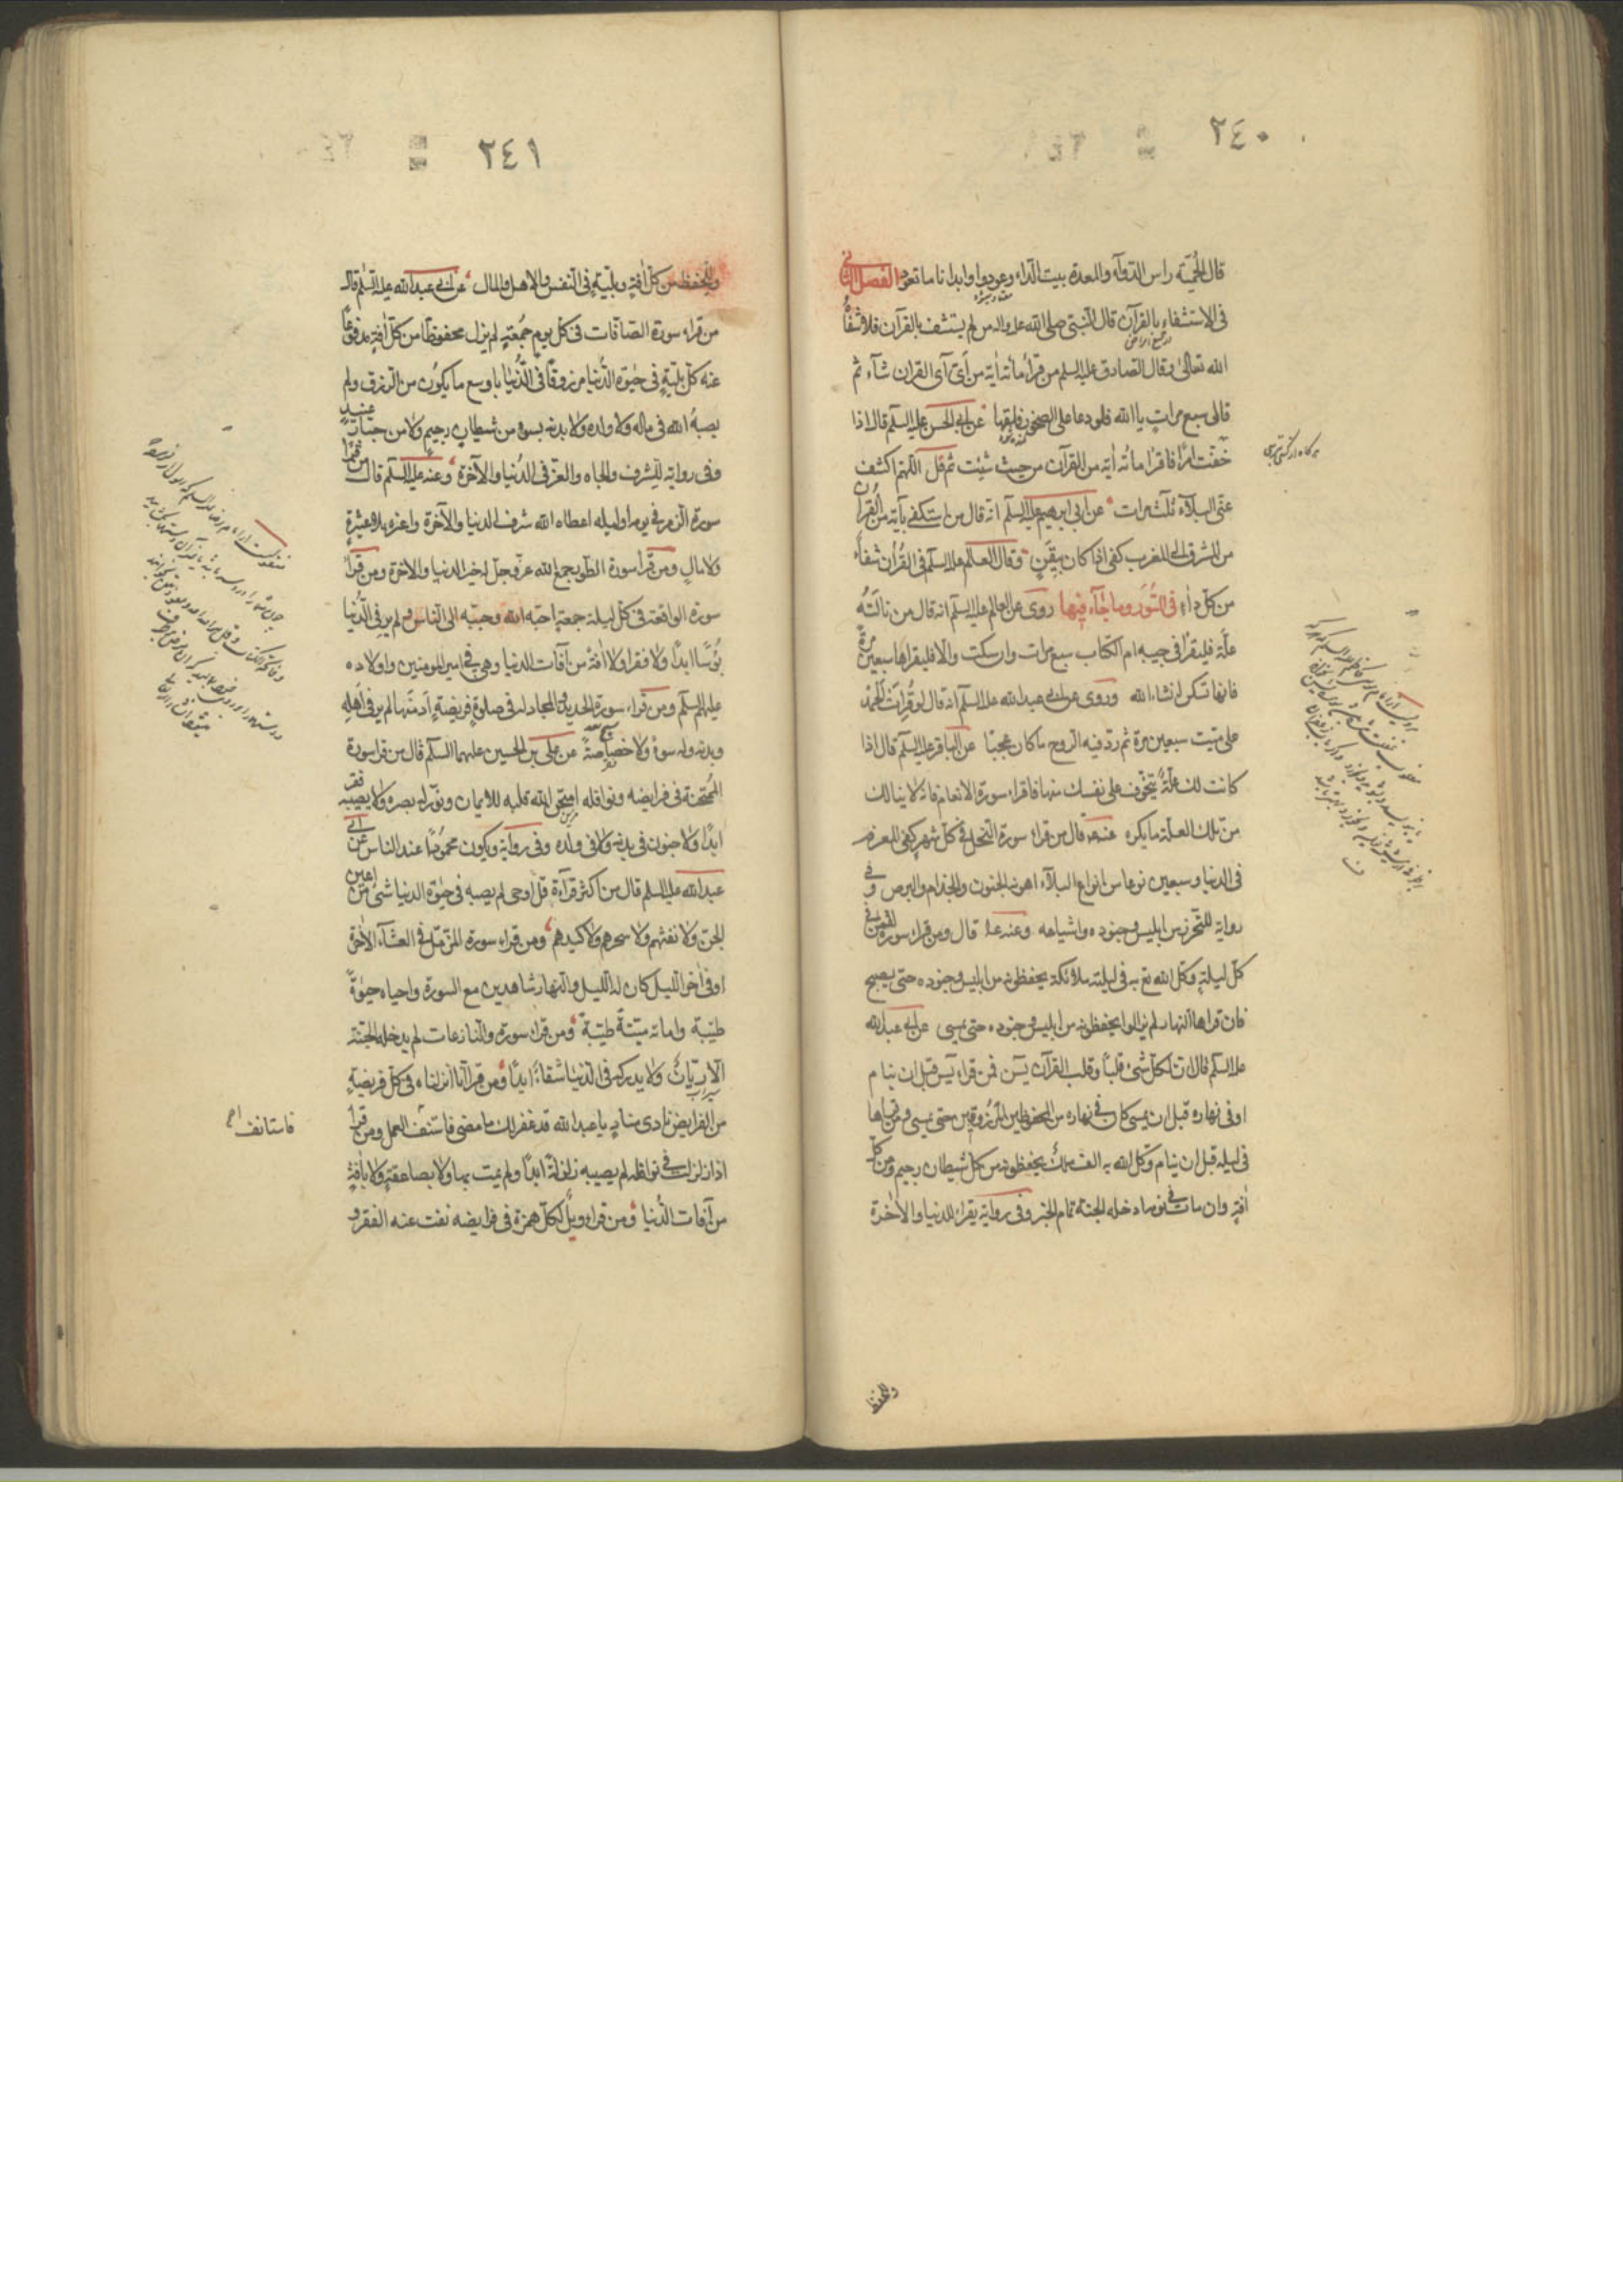 ٢٤٠
قال الحمية راس الدوآء والمعدة بيت الداء وعودوا ابدانا ما تعود الفصل الثانى
فى الاستشفاء بالقرآن قال النبى صلى الله عليه واله من لم يستشف بالقرآن فلا شفاه
الله تعالى وقال الصادق عليه السلم من قراء مائه اٰية من اَىّ آى القران شآء ثم
قال سبع مرات يا الله فلو دعا على الصخور فلقها عن ابى الحسن عليه السلم قال اذا
خفت امرًا فاقرا مائه اٰية من القرآن من حيث شئت ثم قل اللّهم اكشف
عنّى البلآء ثلث مرات عن ابى ابرهيم عليه السلم انه قال من استكفى بآية من القرآن
من الشرق الى المغرب كفى اذا كان بيقين وقال العالم عليه السلم فى القرآن شفآء
من كل دآء فى السُّوَر وما جآء فيها روى عن العالم عليه السلم انه قال من نالته
علّة فليقرا فى جيبه ام الكتاب سبع مرات وان سكنت والا فليقراها سبعين مرة
فانها تسكن انشاء الله وروى عن ابى عبد الله عليه السلم انه قال لو قُرِاَت الحمد
على ميّت سبعين مرة ثم ردّ فيه الروح ما كان عجبًا عن الباقر عليه السلم قال اذا
كانت لك علّة تتخوف على نفسك منها فاقراء سورة الانعام فانه لا ينالك
من تلك العلّة ما يكره عنه قال من قراء سورة النحل فى كل شهر كفى المغرم
فى الدنيا وسبعين نوعا من انواع البلآء اهونه الجنون والجذام والبرص وفى
رواية للتحرز من ابليس وجنوده واشياعه وعنه قال ومن قراء سورة لقمن فى
كل ليلة وكّل الله به فى ليلته ملائكة يحفظونه من ابليس وجنوده حتى يصبح
فان قراها النهار لم يزالوا يحفظونه من ابليس وجنوده حتى يمسى عن ابى عبد الله
عليه السلم قال ان لكل شئ قلبًا وقلب القرآن يٓس فمن قراء يٓس قبل ان ينام
او فى نهاره قبل ان يمسى كان فى نهاره من المحفوظين المرزوقين حتى يمسى ومن قراها
فى ليله قبل ان ينام وكل الله به الف ملك يحفظونه من كل شيطان رجيم ومن كل
اٰفة وان مات فى نومه ادخله الجنة تمام الخبر وفى رواية يقراء للدنيا والاٰخرة
وللحفظ
هركاه از كسى بترسى
٢٤١
وللحفظ من كل اٰفة وبليّة فى النفس والاهل والمال عن ابى عبد الله عليه السلم قال
من قراء سورة الصافات فى كل يوم جمعة لم يزل محفوظًا من كل اٰفة مدفوعًا
عنه كل بليّة فى حيٰوة الدنيا مرزوقًا فى الدُّنيا باوسع ما يكون من الرزق ولم
يصبه الله فى ماله ولا ولده ولا بدنه بسوء من شيطان رجيم ولا من جبّار عنيد
وفى رواية للشرف والجاه والعزّ فى الدُّنيا والآخرة وعنه عليه السلم قال من قرا
سورة الزمر فى يومه او ليله اعطاه الله شرف الدنيا والآخرة واعزه بلا عشيرة
ولا مال ومن قرا سورة الطور جمع الله عزّ وجلّ له خير الدنيا والاخرة ومن قرا
سورة الواقعة فى كل ليلة جمعة احبّه الله وحبّبه الى الناس ولم ير فى الدُّنيا
بؤسًا ابدًا ولا فقرا ولا اٰفة من آفات الدنيا وهى فى امير المومنين واولاده
عليهم السلم ومن قراء سورة الحديد والمجادلة فى صلوة فريضة اَدمنها لم ير فى اَهله
وبدنه وله سوءً ولا خصاصةً عن على بن الحسين عليهما السلم قال من قرا سورة
الممتحنة فى فرايضه ونوافله امتحن الله قلبه للايمان ونوّر له بصره ولا يصيبه فقر
ابدًا ولا جنون فى بدنه ولا فى ولده وفى رواية ويكون محمودًا عند الناس عن ابى
عبد الله عليه السلم قال من اكثر قرآءة قل اوحى لم يصبه فى حيٰوة الدنيا شئ من اعين
الجن ولا نفثهم ولا سحرهم ولا كيدهم ومن قراء سورة المزّمّل فى العشآء الآخرة
او فى اٰخر الليل كان له الليل والنهار شاهدين مع السورة واحياه حيٰوةً
طيّبة واماته ميتةً طيّبة ومن قراء سورة والنازعات لم يدخله الجنّة
الّا ريّانَ ولا يدركه فى الدنيا شقاءً ابدًا ومن قرا اَنا انزلناه فى كل فريضة
من الفرايض نادى مناد يا عبد الله قد غفر لك ما مضى فاستنف العمل ومن قرا
اذا زلزلت فى نوافله لم يصيبه زلزلة ابدًا ولم يمت بها ولا بصاعقة ولا باٰفة
من آفات الدنيا ومن قراء ويل لكل همزة فى فرايضه نفت عنه الفقر و
فاستانف